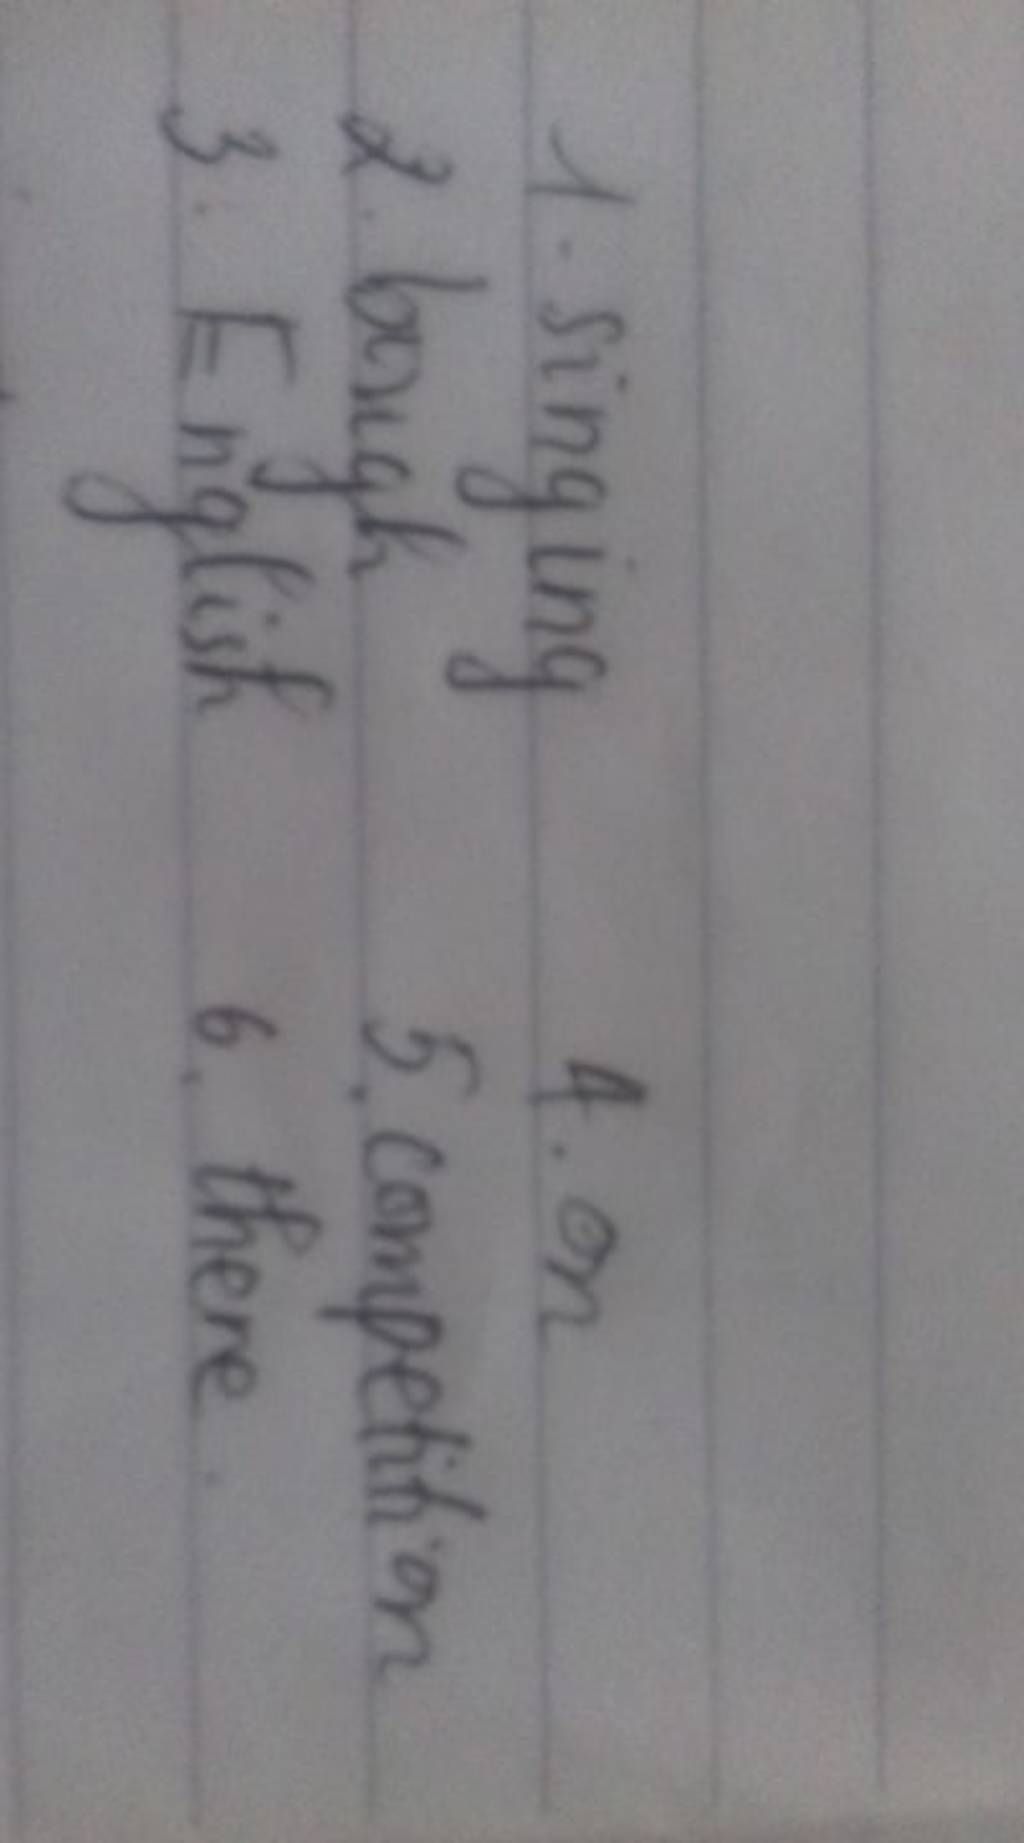 1. singing 4. on
2. bough 5. competition
3. English 6. there.